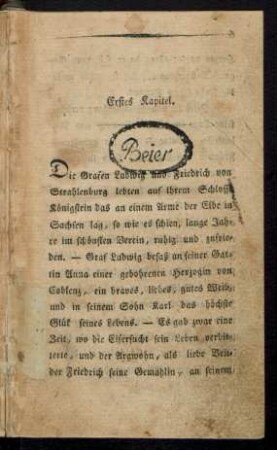 Erstes Kapitel.
Beier
Die Grafen Ludwig und Friedrich von
Strahlenburg lebten auf ihrem Schloß
Königstein das an einem Arme der Elbe in
Sachsen lag, so wie es schien, lange Jah-
re im schönsten Verein, ruhig und zufrie-
den. — Graf Ludwig besaß an seiner Gat-
tin Anna einer gebohrenen Herzogin von
Coblenz, ein braves, liebes, gutes Weib,
und in seinem Sohn Karl das höchste
Glük seines Lebens. — Es gab zwar eine
Zeit, wo die Eifersucht sein Leben verbit-
terte, und der Argwohn, als liebe Bru-
der Friedrich seine Gemahlin, an seinem